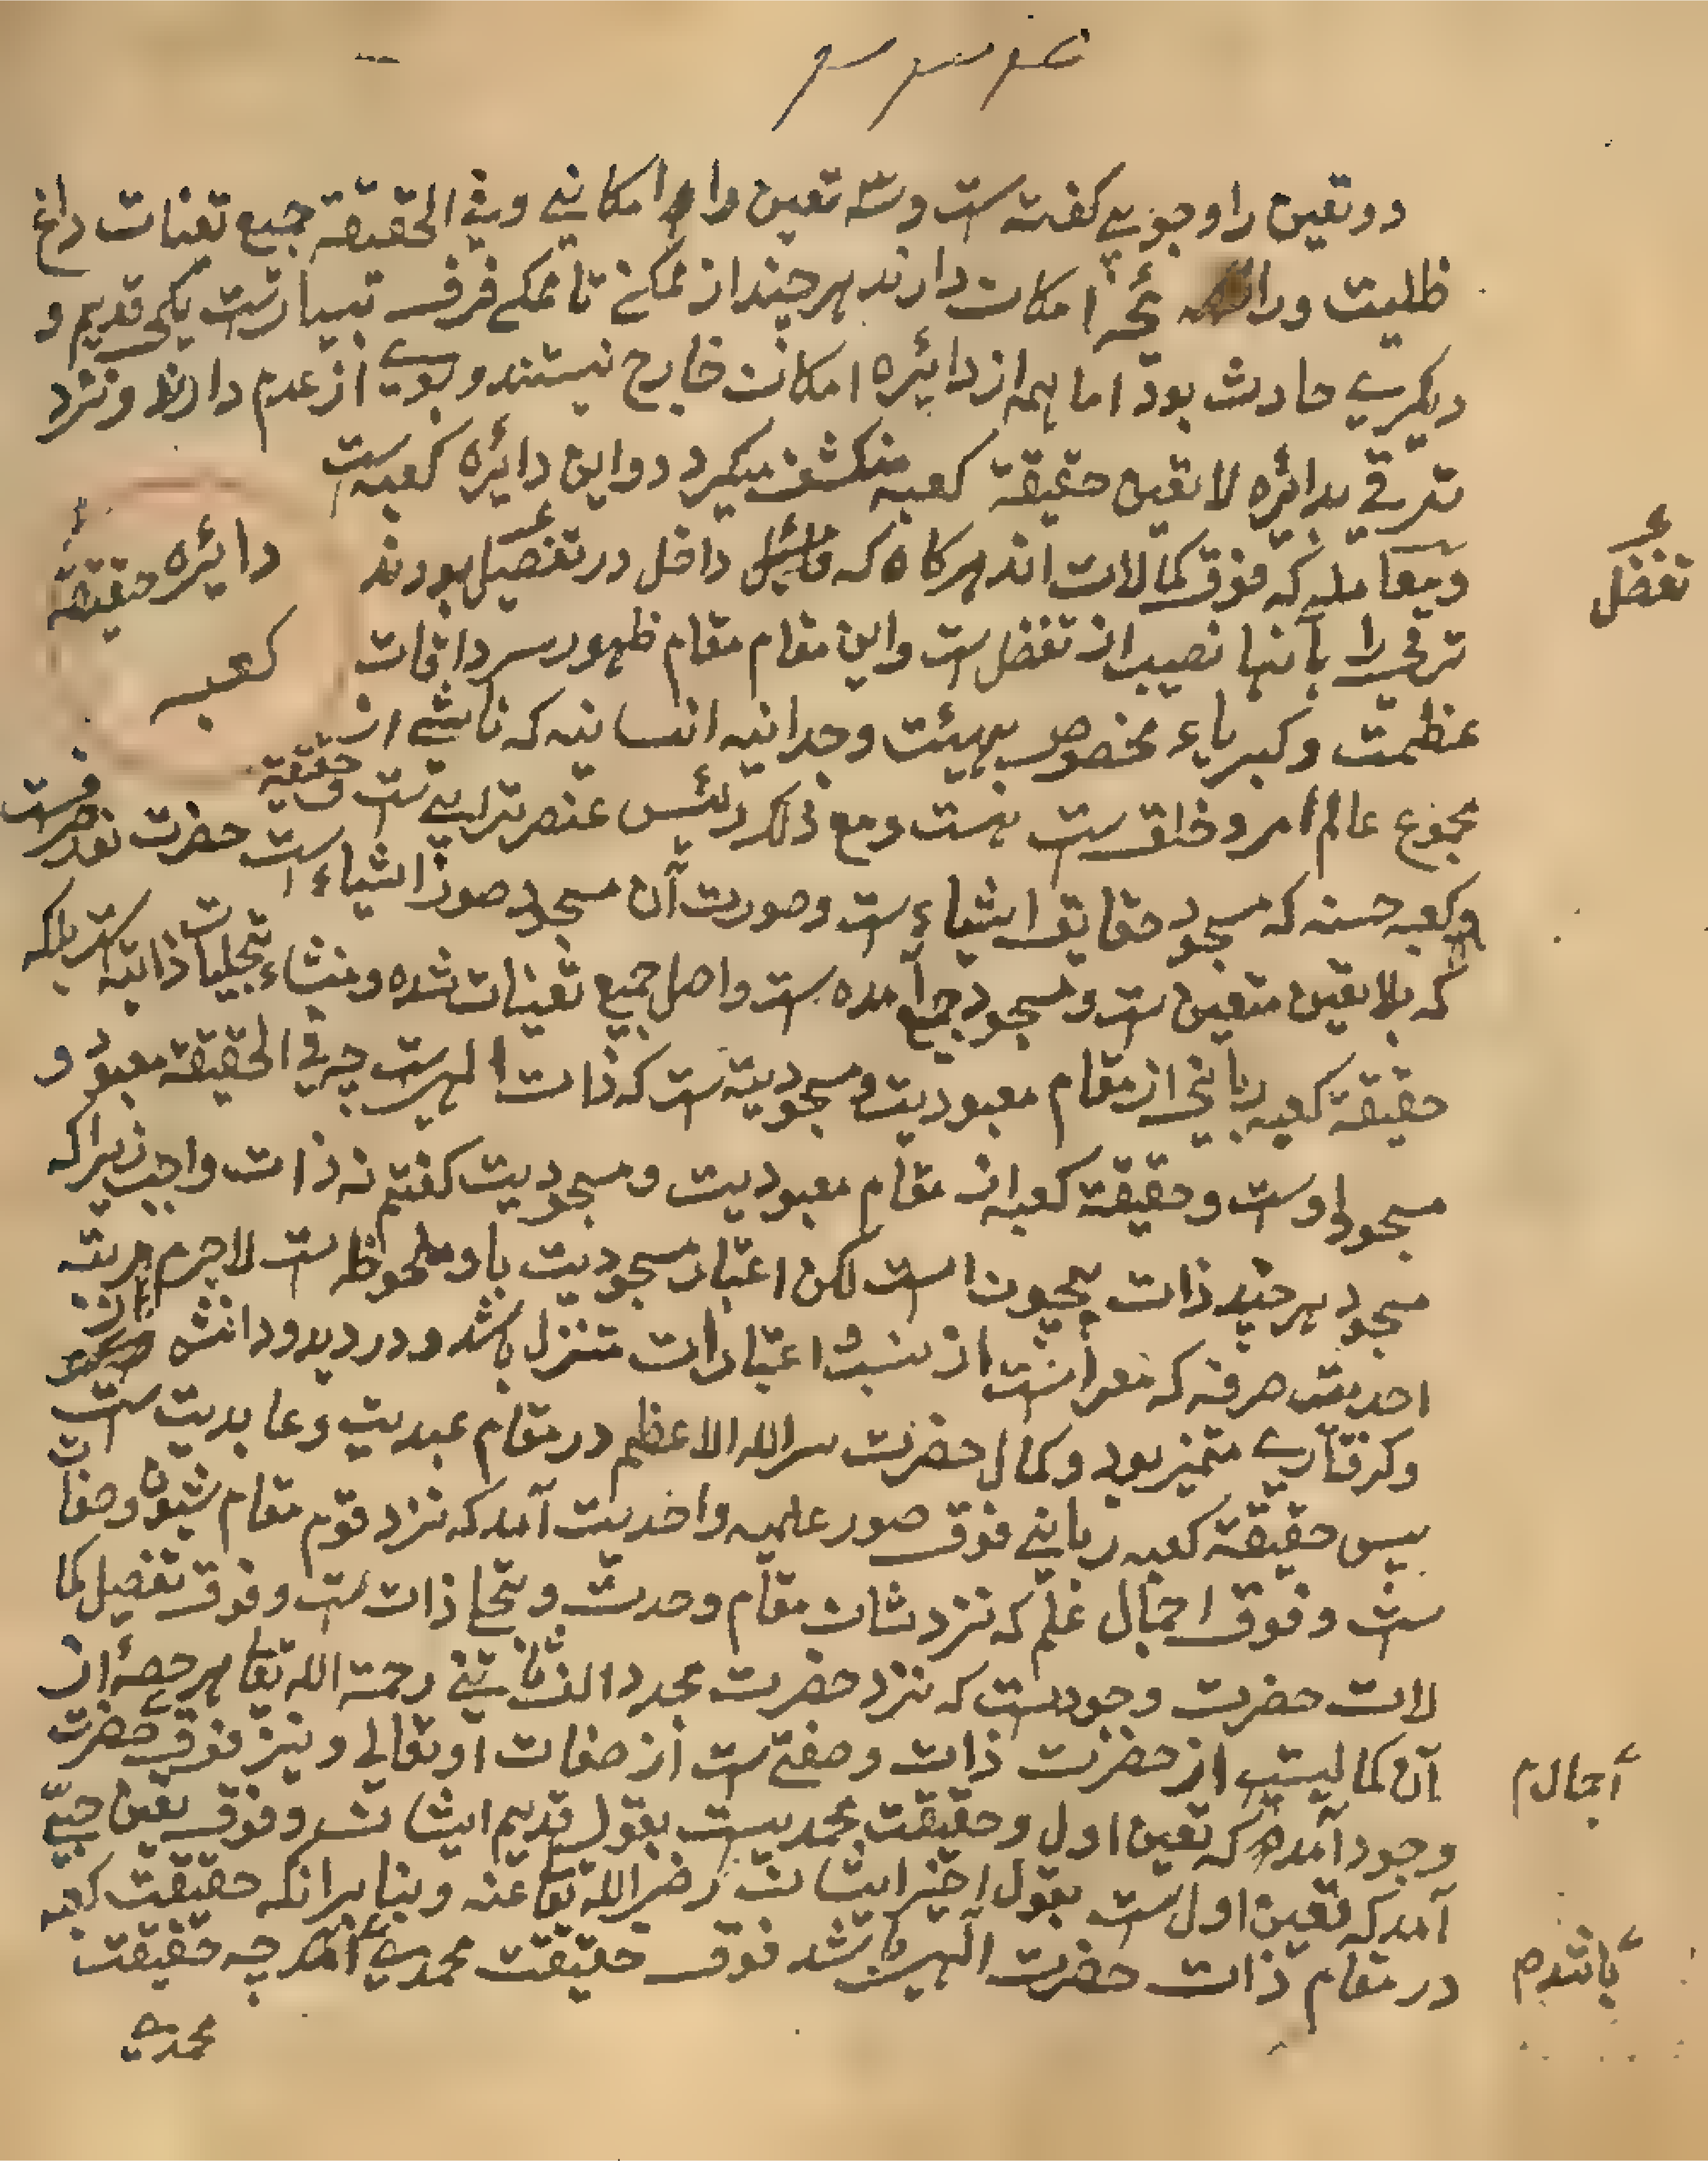 دو تعین را وجوبی کفته ست و سه تعین را امکانی وفی الحقیقة جمیع تعینات داغ
ظلیت و رائحه امکان دارند هر چند از ممکنی تا ممکنی فرق بسیارست یکی قدیم و
دیکری حادث بود اما همه از دائره امکان خارج نیستند و بوی از عدم دارند و نزد
ترقی بدائره لا تعین حقیقة کعبه منکشف میکردد و این دائره کعبه ست
دائره حقیقة
کعبه
و معامله که فوق کمالات اند هرکاه که داخل در تفضیل بودند
تفضل
ترقی را بآنها نصیب از تفضل ست و این مقام مقام ظهور سرداقات
عظمت و کبریاء مخصوص بهیئت وحدانیه انسانیه که ناشی از
مجموع عالم امر و خلق ست هست و مع ذلک رئیس عنصر ترابی ست حقیقة
و کعبه حسنه که مسجود حقایق اشیاء ست و صورت آن مسجود صور اشیاء است حضرت نور صرفست
که بلا تعین متعین ست و مسجود جمیع آمده ست و اصل جمیع تعینات شده و منشاء تجلیات ذاتیه ست بلکه
حقیقة کعبه ربانی از مقام معبودیت و مسجودیة ست که ذات الهیست چه فی الحقیقة معبود و
مسجود اوست و حقیقة کعبه از مقام معبودیت و مسجودیت کفتم نه ذات واجب زیرا که
مسجود هر چند ذات بیچون است لکن اعتبار مسجودیت باو ملحوظ ست لاجرم مرتبه
احدیت صرفه که معرا ست از نسب و اعتبارات متنزل باشد و در دید و دانش از
و کرفتاری متمیز بود و کمال حضرت سر الله الاعظم در مقام عبدیت و عابدیت ست
پس حقیقة کعبه ربانی فوق صور علمیه واحدیت آمد که نزد قوم مقام شیون و صفات
ست و فوق اجمال علم که نزد شان مقام وحدت و تجلی ذات ست و فوق تفصیل کما
لات حضرت وجودست که نزد حضرت مجدد الف ثانی رحمة الله تعا هر حصهٔ از
آن کمالیست از حضرت ذات و صفتی ست از صفات او تعالی و نیز فوق حضرت
اجمال م
وجود آمده که تعین اول و حقیقت محمدیست بقول قدیم ایشان و فوق تعین حبی
آمد که تعین اول ست بقول اخیر ایشان رضی الله تعا عنه و بنا برانکه حقیقت کعبه
در مقام ذات حضرت الهیست باشد فوق حقیقت محمدی آمد چه حقیقت
باشد م
محمدی